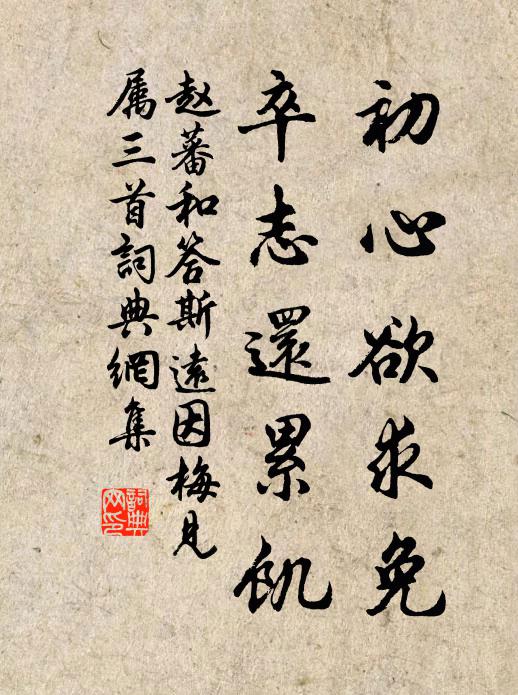 初心欲求免
卒志還累飢
赵蕃和答斯遠因梅見
属三首詞典網集
詞典
网印